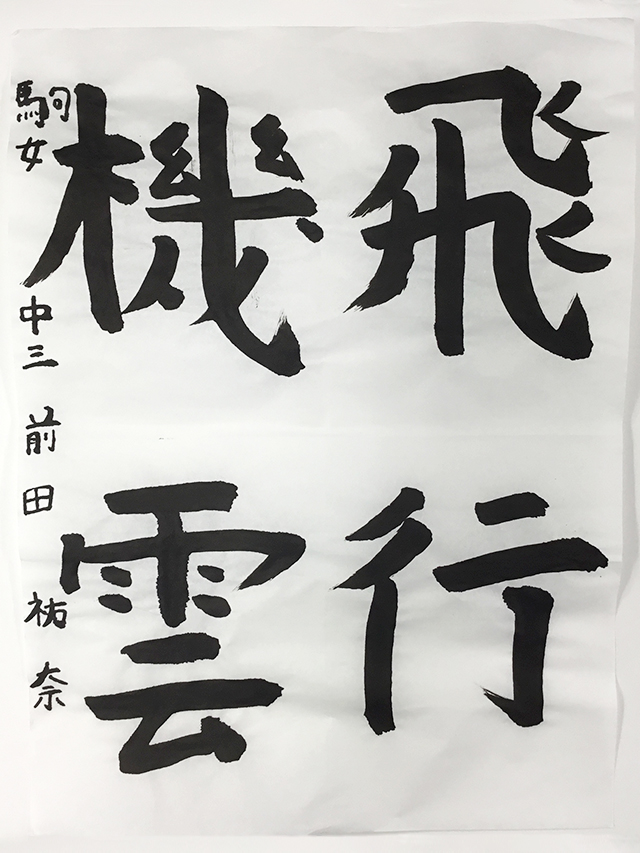 飛行
機雲
駒女中三前田祐奈